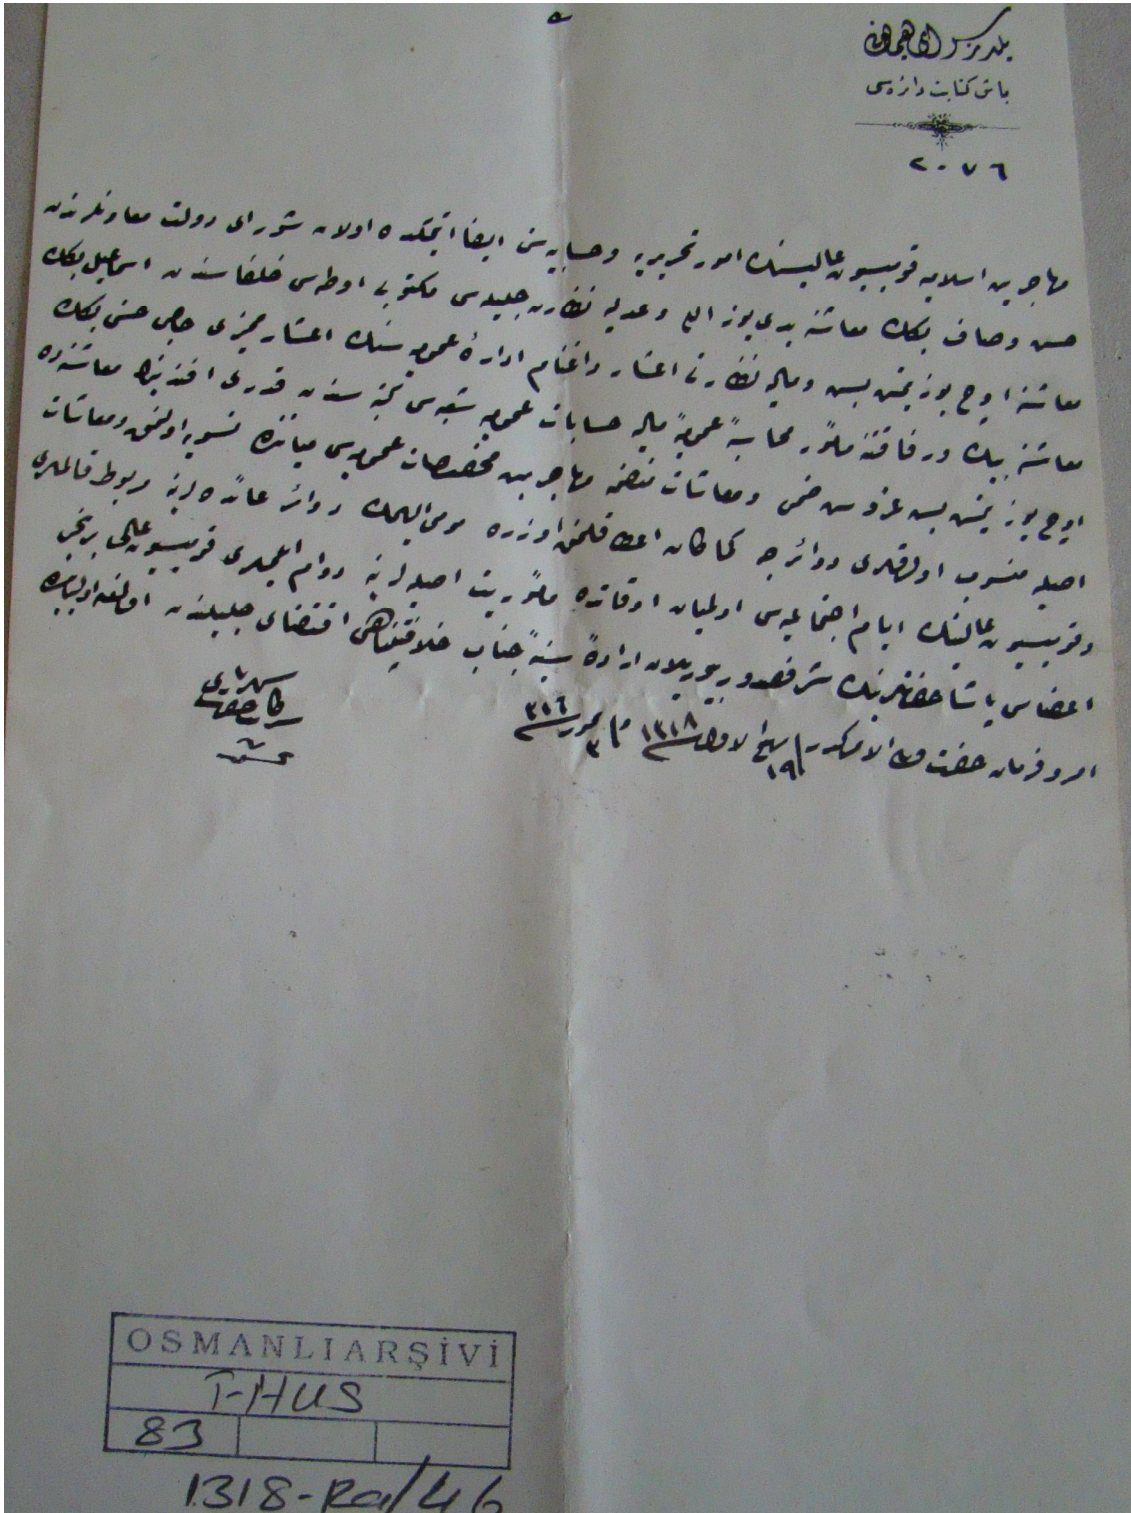 يلديز سراى همايونى
باش كتابت دائره سى
٢٠٧٦
مهاجرين اسلاميه قوميسيون عاليسنك امور تحريريه وحسابيه سنى ايفا ايتمكده اولان شوراى دولت معاونلرندن
حسن وصاف بكك معاشنه يدى يوز اللى وعدليه نظارت جليله سى مكتوبى اوطه سى خلفاسندن اسماعيل بكك
معاشنه اوچ يوز يتمش بش وماليه نظارتى اعشار واغنام اداره عموميه سنك اعشار مميزى حسنى بكك
معاشنه بيك ورفاقتنه مأمور محاسبه عموميه ماليه حسابات عموميه شعبه سى كتبه سندن قدرى افندينك معاشنه ده
اوچ يوز يتمش بش غروش ضمى ومعاشات منضمه مهاجرين مخصصات عموميه سى مياننده تسويه اولنمق ومعاشات
اصليه منسوب اولدقلرى دوائرجه كماكان اعطا قلنمق اوزره مومى اليهمك دوائر عائده لرينه مربوط قالملرى
وقوميسيون عالينك ايام اجتماعيه سى اولميان اوقاتده مأموريت اصليه لرينه دوام ايتملرى قوميسيون عالى برنجى
اعضاسى پاشا حضرتلرينك شرفصدور بيوريلان اراده سنيه جناب خلافتپناهى اقتضاى جليلندن اولمغله اولبابده
امر وفرمان حضرت ولى الامركدر فى ١٩ ربيع الاول ١٣١٨ فى ٣ تموز ٣١٦
سركاتب حضرت شهريارى
تحسين
OSMANLI ARŞİVİ
İ-HUS
83
1318-Ra/46